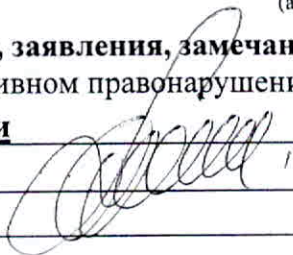 (а
, заявления, замечан
ивном правонарушени
и